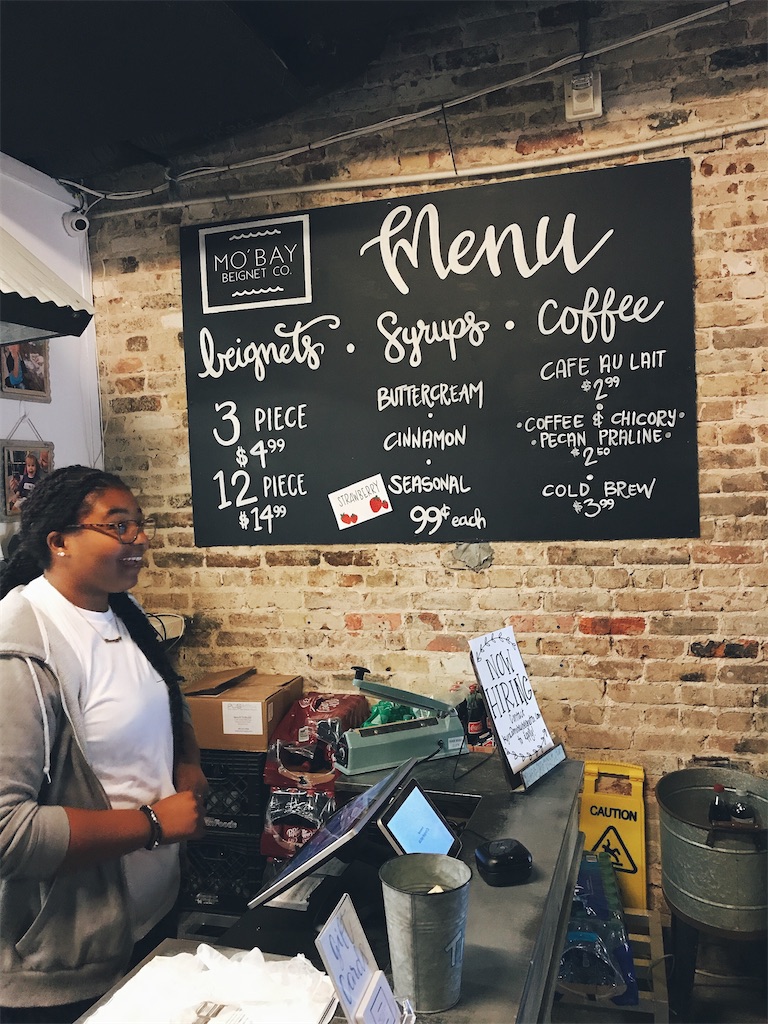 MO'BAY
BEIGNET CO.
Menu
beignets • Syrups • Coffee
3 PIECE
$4.99
12 PIECE
$14.99
BUTTERCREAM
•
CINNAMON
•
SEASONAL
STRAWBERRY
99¢ each
CAFE AU LAIT
$2.99
•COFFEE & CHICORY•
•PECAN PRALINE•
$2.50
COLD BREW
$3.99
NOW
HIRING
to apply!
CAUTION
Gift
Cards